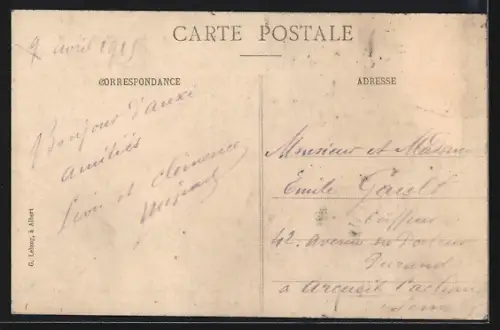 9 avril 1915
CARTE POSTALE
CORRESPONDANCE
ADRESSE
Bonjour d'auxi
amitiés
et clémence
Monsieur et Madame
Emile Gault
Coiffeur
42. Avenue du Docteur
Durand
à Arcueil Cachan
Seine
G. Lelong, à Albert